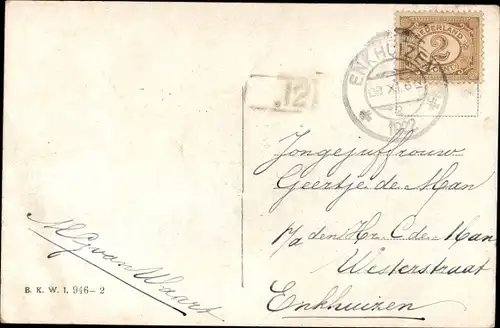 NEDERLAND
2
ENKHUIZEN
1922
12
Jongejuffrouw
Geertje de Man
p/a den Hr. C. de Man
Westerstraat
Enkhuizen
B. K. W. I. 946-2